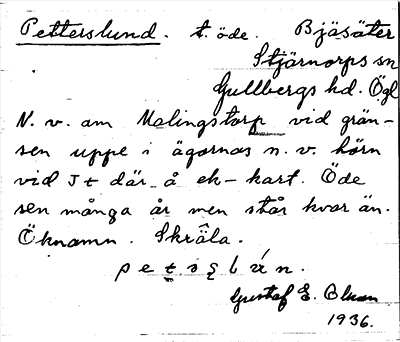 Petterslund. t. öde. Bjäsäter
Stjärnorps sn
Gullbergs hd. Ögl
N. v. om Malingstorp vid grän-
sen uppe i ägornas n. v. hörn
vid J t där å ek-kart. Öde
sen många år men står kvar än.
Öknamn. Skråla.
Gustaf E. Olson
1936.